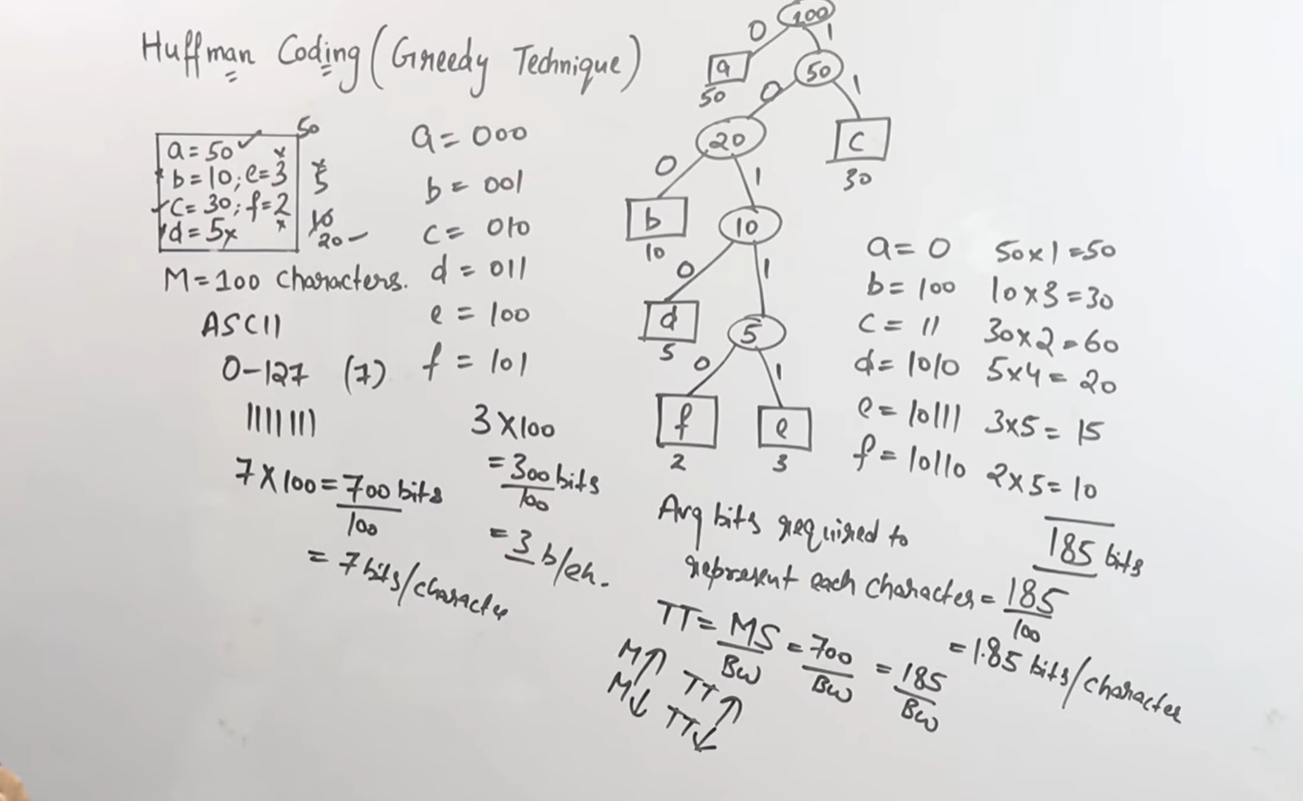 Huffman Coding (Greedy Technique)
a = 50 ✓ x
b = 10; e = 3
c = 30; f = 2
d = 5x x
50
5
10
20 -
M = 100 characters.
ASCII
0-127 (7)
1111111
7 X 100 = 700 bits
100
= 7 bits/character
a = 000
b = 001
c = 010
d = 011
e = 100
f = 101
3 X 100
= 300 bits
100
= 3 b/ch.
100
0 1
a 50
50 0 1
20 c
0 1 30
b 10
10 0 1
d 5
5 0 1
f e
2 3
a = 0 50 x 1 = 50
b = 100 10 x 3 = 30
c = 11 30 x 2 = 60
d = 1010 5 x 4 = 20
e = 10111 3 x 5 = 15
f = 10110 2 x 5 = 10
185 bits
Avg bits required to
represent each character = 185
100
= 1.85 bits/character
TT = MS = 700 = 185
BW BW BW
M↑ TT↑
M↓ TT↓